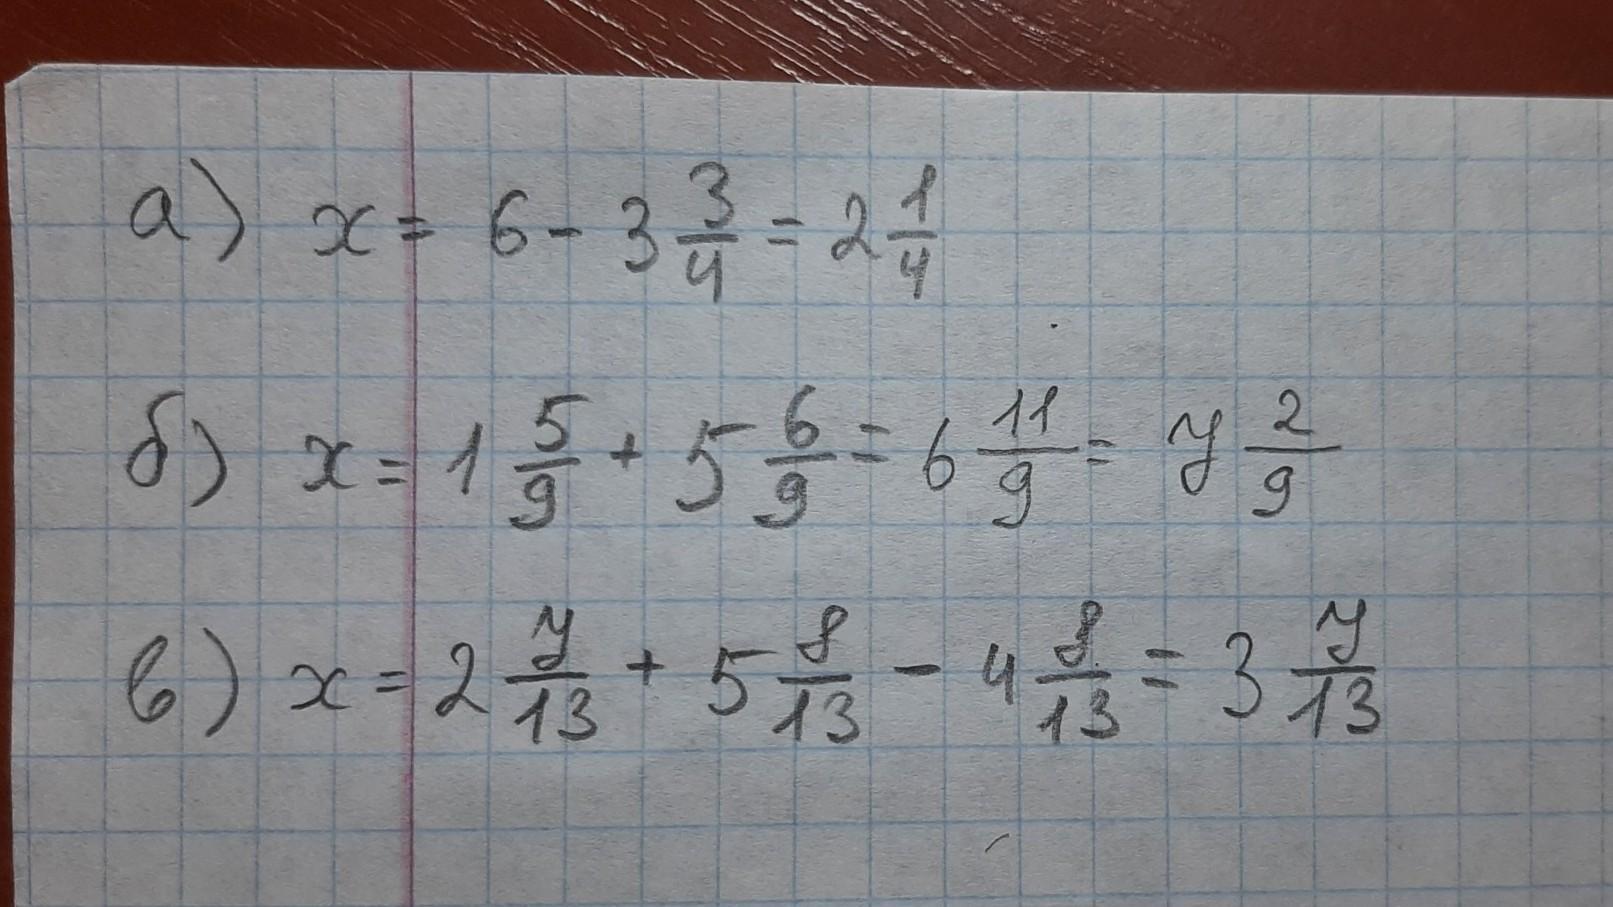 а) x = 6 - 3 3/4 = 2 1/4
б) x = 1 5/9 + 5 6/9 = 6 11/9 = 7 2/9
в) x = 2 7/13 + 5 8/13 - 4 8/13 = 3 7/13